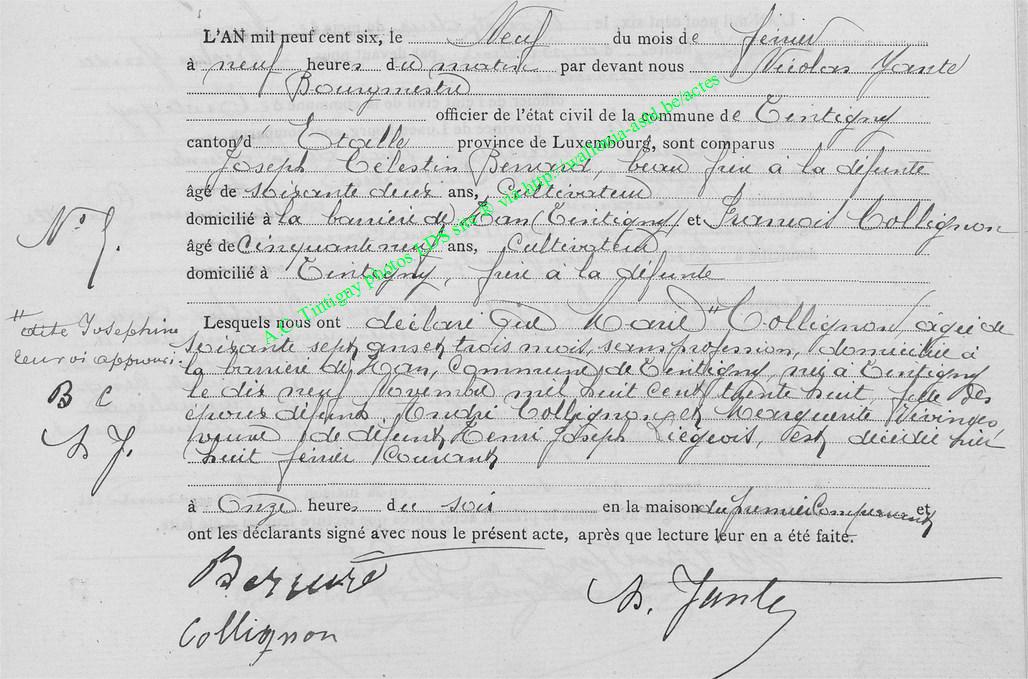 L'AN mil neuf cent six, le Neuf du mois de février
à neuf heures du matin par devant nous Nicolas Yante
Bourgmestre
officier de l'état civil de la commune de Tintigny
canton d' Etalle province de Luxembourg, sont comparus
Joseph Célestin Bernard, beau frère à la défunte
âgé de soixante deux ans, Cultivateur
domicilié à la barrière de Han (Tintigny) et François Collignon
âgé de Cinquante neuf ans, Cultivateur
domicilié à Tintigny, frère à la défunte
N° 7.
Lesquels nous ont déclaré que Marie # Collignon, âgée de
soixante sept ans et trois mois, sans profession, domiciliée à
la barrière de Han, Commune de Tintigny, née à Tintigny
le dix neuf Novembre mil huit cent trente huit, fille des
époux défunts André Collignon et Marguerite
veuve de défunt Henri Joseph Liégeois, est décédée hier
huit février courant
# dite Joséphine
renvoi approuvé.
B C
N Y.
à Onze heures du soir en la maison du premier Comparant et
ont les déclarants signé avec nous le présent acte, après que lecture leur en a été faite.
Bernard
Collignon
N. Yante
A.C. Tintigny photos LDS sur © via http://wallonia-asbl.be/actes